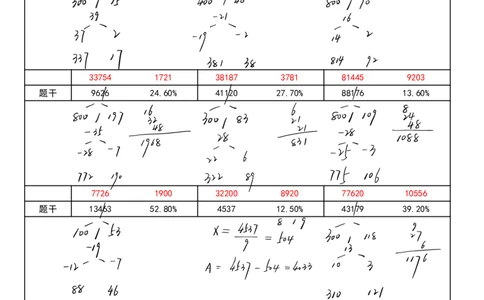 39
-21
16
37 2
-19 -2
14 2
337 17
381 38
814 92
33754 1721 38187 3781 81445 9203
题干 9626 24.60% 41120 27.70% 88176 13.60%
800 197 16 300 83 6 800 109 8
-35 32 28 21 -28 24
48 21 48
-28 -7 1968 22 6 831 -25 -3 1088
772 190 322 89 775 106
7726 1900 32200 8920 77620 10556
题干 13463 52.80% 4537 12.50% 43179 39.20%
100 53 X = 4537/9 = 504 8 1 9 300 118 9
-19 13 27
-12 -7 A = 4537 - 504 = 4033 10 3 6
1176
88 46 310 121